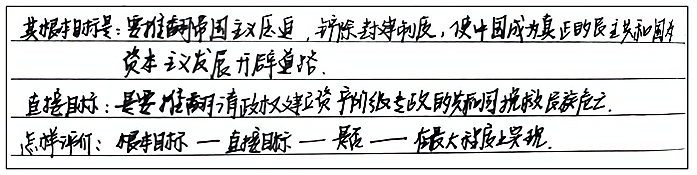 其根本目标是:要推翻帝国主义压迫,铲除封建制度,使中国成为真正的民主共和国为
资本主义发展开辟道路.
直接目标:是要推翻清政权建立资产阶级专政的共和国挽救民族危亡.
怎样评价:根本目标—直接目标—是否—在最大程度上实现.